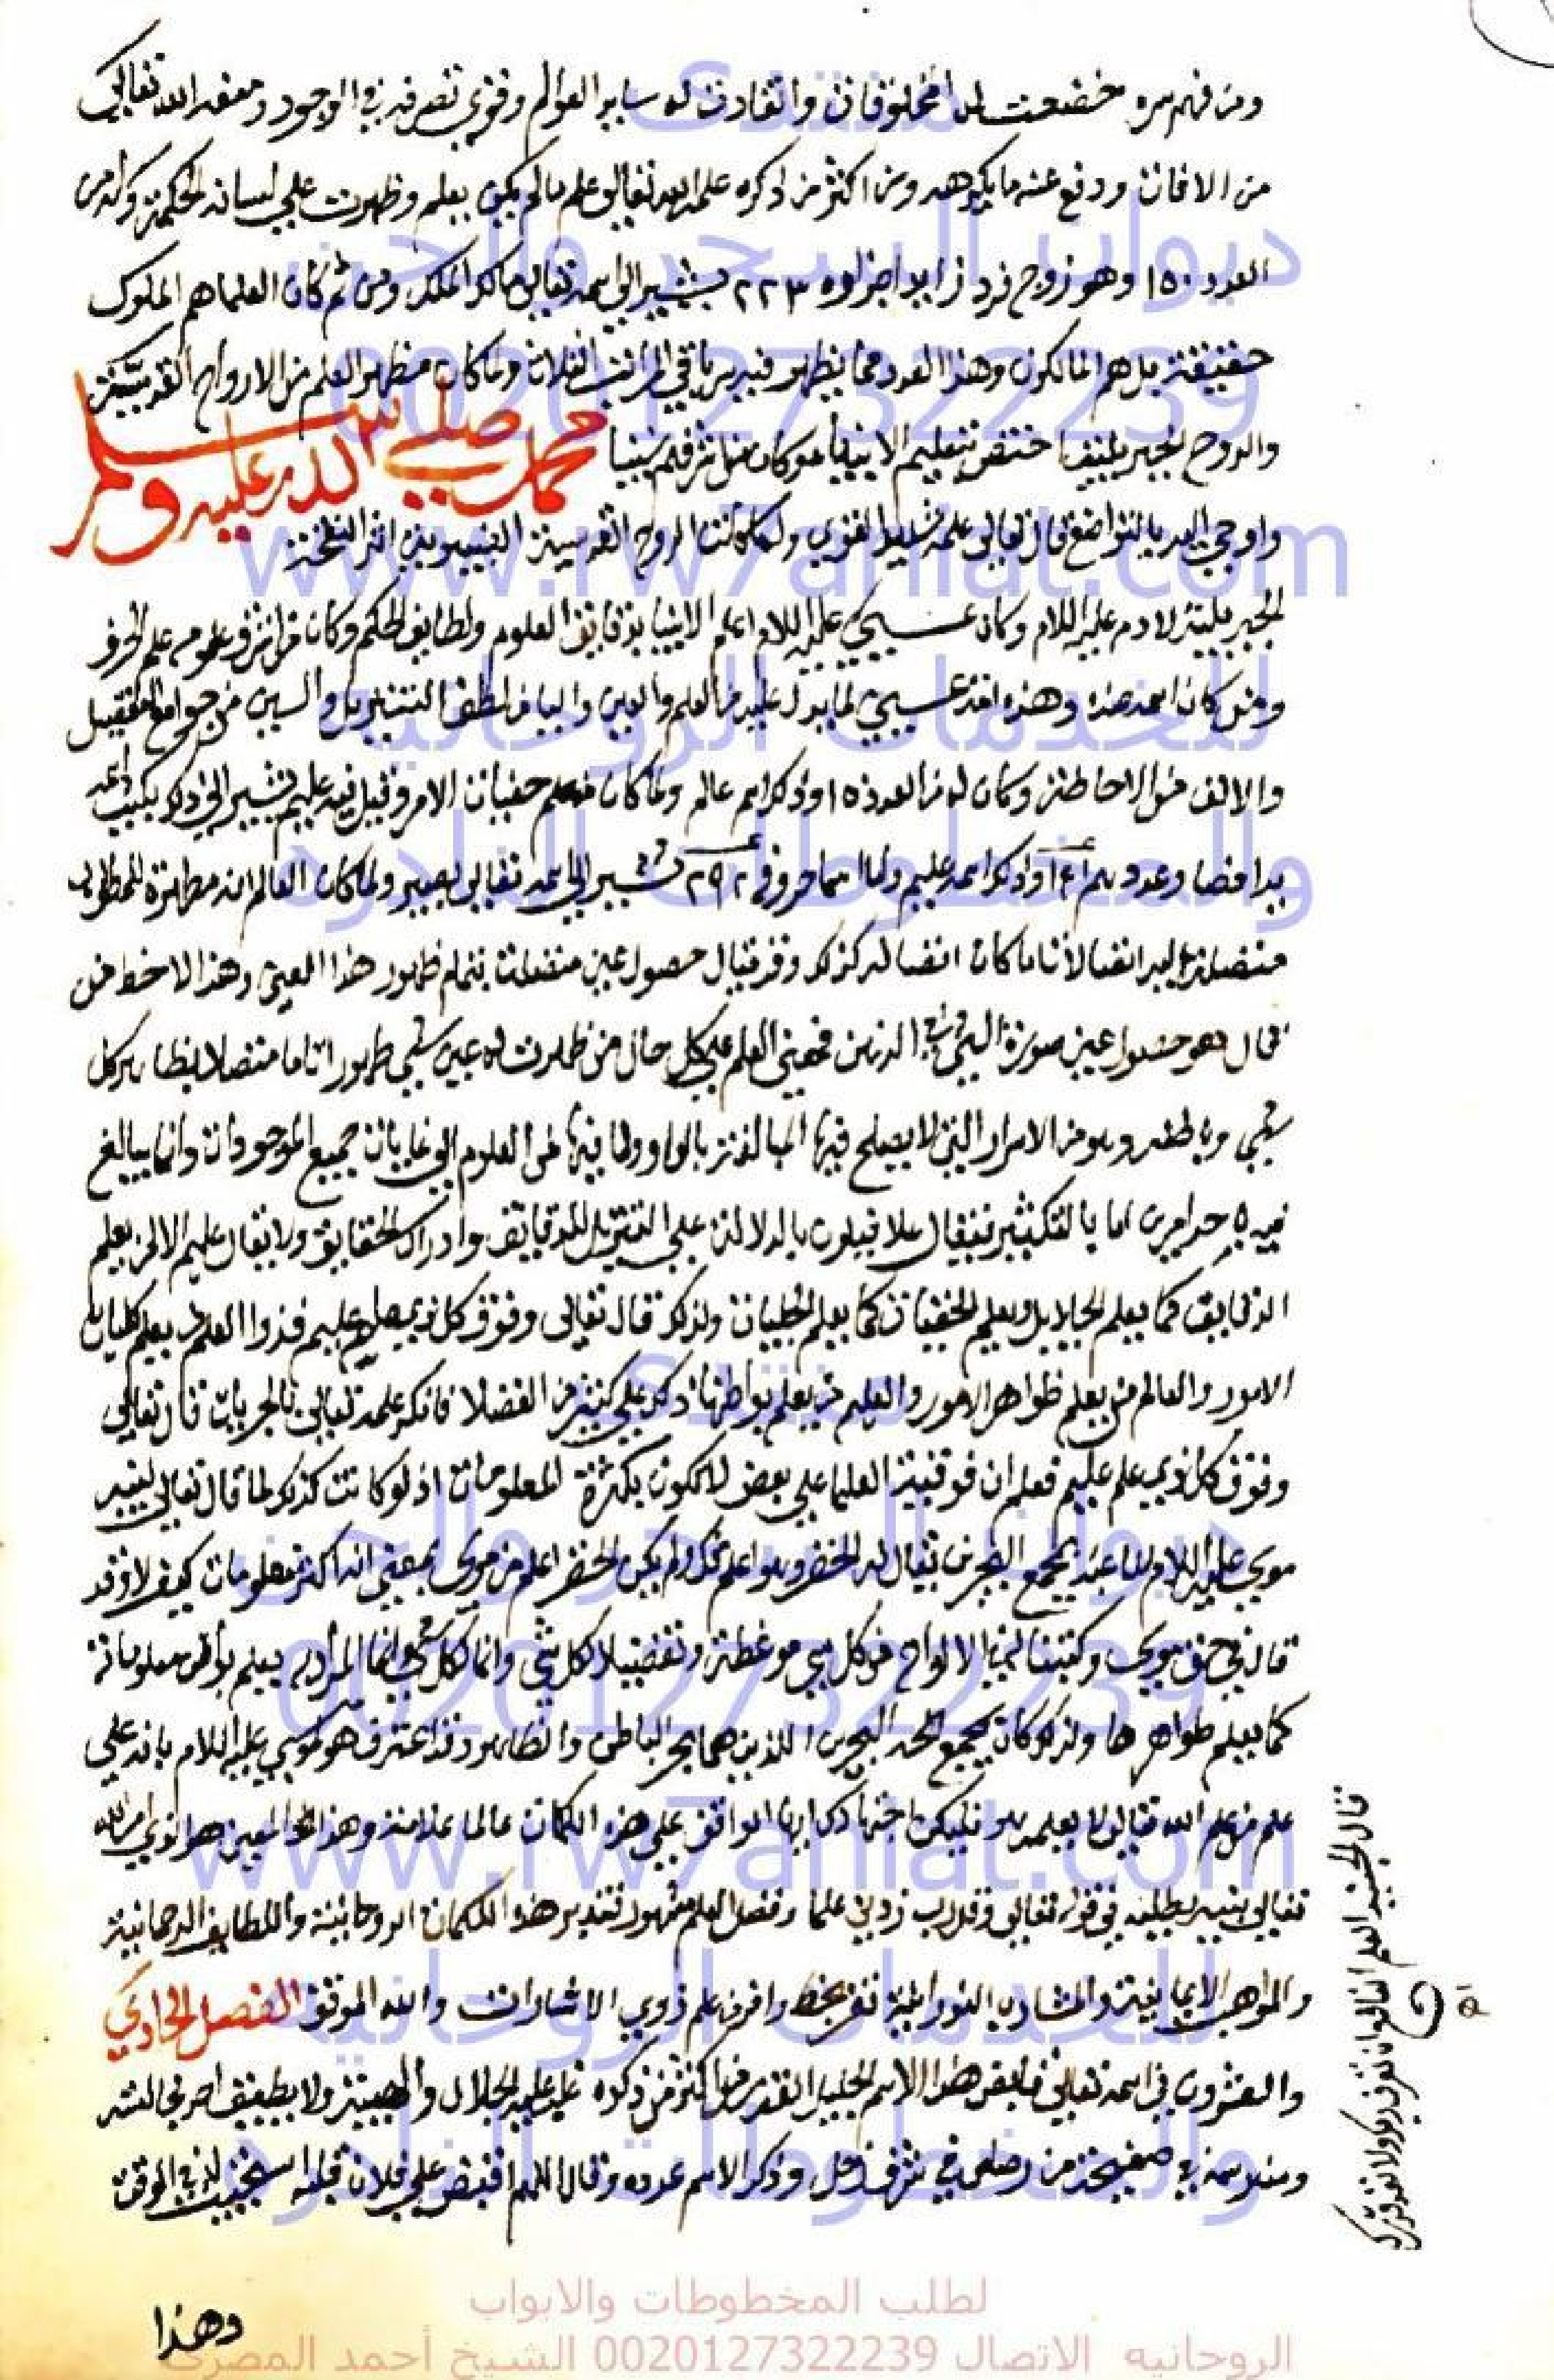 ومن فهم سره خضعت له المخلوقات وانقادت له ساير العوالم وقوي تصرفه في الوجود ومنعه الله تعالى
من الافات ودفع عنه ما يكرهه ومن اكثر من ذكره علمه الله تعالى علم ما لم يكن يعلم وظهرت على لسانه الحكمة وله من
العدد ١٥٠ وهو زوج فرد زايد اجزاوه ٢٢٣ يشير الى اسمه تعالى مالك الملك ومن ثم كان العلما هم الملوك
حقيقة بل هم المالكون وهذا العدد مما يظهر فيه باقي المراتب الثلاث ولما كان مظهر العلم من الارواح القدسية
والروح الجبريلية اختص بتعليم الانبيا وكان من شرفهم نبينا محمد صلى الله عليه وسلم
واوحى اليه بالتواضع قال تعالى علمه شديد القوى ولما كانت الروح القدسية العيسوية اثر النفخة
الجبريلية لادم عليه السلام وكان عيسى عليه السلام اعلم الانبيا بدقايق العلوم ولطايف الحكم وكان من اشرف علومه علم الحرف
ومن كان اسمه هذه وهذه لغة عيسى لما يدل عليه من العلم والعين واليا من لطف التنزيل والسين من جوامع التفصيل
والالف من الاحاطة وكان له من العدد ١٥ وذكر اسم عالم ولما كان يعلم خفيات الامر وقيل فيه عليم يشير الى ذلك
وعدد اسم وذكر اسمه عليم ولها اسما حروف ٢٩٢ تشير الى اسمه تعالى بصير ولما كان العالم انه مطابقة للمطلوب
متصلة اليه اتصالا تاما كان اتصاله كذلك وقد يقال حصول عين متصلة بتمام ظهور هذا المعنى وهذا الاحظ من
قال هو حصول عين صورة الشي في الذهن فمعنى العلم على كل حال من ظهرت له عين شي ظهورا تاما متصلا بظاهر كل
شي وباطنه وهو من الاسرار التي لا يصلح فيها المبالغة بالواو ولما فيها من العلوم الى غايات جميع الموجودات وانما يبالغ
فيه باحد امرين اما بالتكثير فيقال علام فيكون بالدلالة على التنزيل للدقايق وادراك الحقايق ولا يقال عليم الا لمن يعلم
الدقايق كما يعلم الجلايل ويعلم الخفيات كما يعلم الجليات ولذلك قال تعالى وفوق كل ذي علم عليم فذوا العلم يعلم كليات
الامور والعالم من يعلم ظواهر الامور والعليم من يعلم بواطنها ذكر على كثير من الفضلا فانكر علمه تعالى بالجزيات قال تعالى
وفوق كل ذي علم عليم فعلم ان فوقية العلما على بعض لا تكون بكثرة المعلومات اذ لو كانت كذلك لما قال تعالى لنبيه
موسى عليه السلام لنا عبد بمجمع البحرين يقال له الخضر وهو اعلم منك ولم يكن الخضر اعلم من موسى بمعنى انه اكثر معلومات كيف لا وقد
قال في حق موسى وكتبنا له في الالواح من كل شي موعظة وتفصيلا لكل شي وانما المراد يعلم بواطن معلوماته
كما يعلم ظواهرها ولذلك كان بمجمع البحرين اللذين هما بحر الباطن والظاهر وقد اعترف هو لموسى عليه السلام بانه على
علم من علم الله تعالى لا يعلمه هو فليكن اجتهادك ايها الواقف على هذه الكلمات عالما علامة وهذا هو المعنى هو الذي امر الله
تعالى نبيه بطلبه في قوله تعالى وقل رب زدني علما وفضل العلم مشهور فتدبر هذه الكلمات الروحانية واللطايف الرحمانية
والمواهب الايمانية والمشارب النورانية تفز بحظ وافر من علم ذوي الاشارات والله الموفق الفصل الحادي
والعشرون في اسمه تعالى قابض هذا الاسم الجليل القدر من اكثر من ذكره غلب عليه الجلال والهيبة ولا يطيق احد مجالسته
ومن رسمه في صفيحة من رصاص في شرف زحل وذكر الاسم عدده وقال اللهم اقبض على فلان قلبه استجيب له في الوقت
وهذا
قال الجنيد العلم النافع ان تعرف ربك ولا تعد قدرك
منتدى
ديوان السحر والجن
00201273222​39
www.rw7aniat.com
للخدمات الروحانية
والمخطوطات النادره
منتدى
ديوان السحر والجن
00201273222​39
www.rw7aniat.com
للخدمات الروحانية
والمخطوطات النادره
لطلب المخطوطات والابواب
الروحانيه الاتصال 0020127322239 الشيخ أحمد المصرى